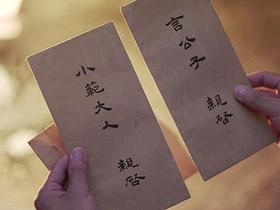 言公子
親啓
小範大人
親啓